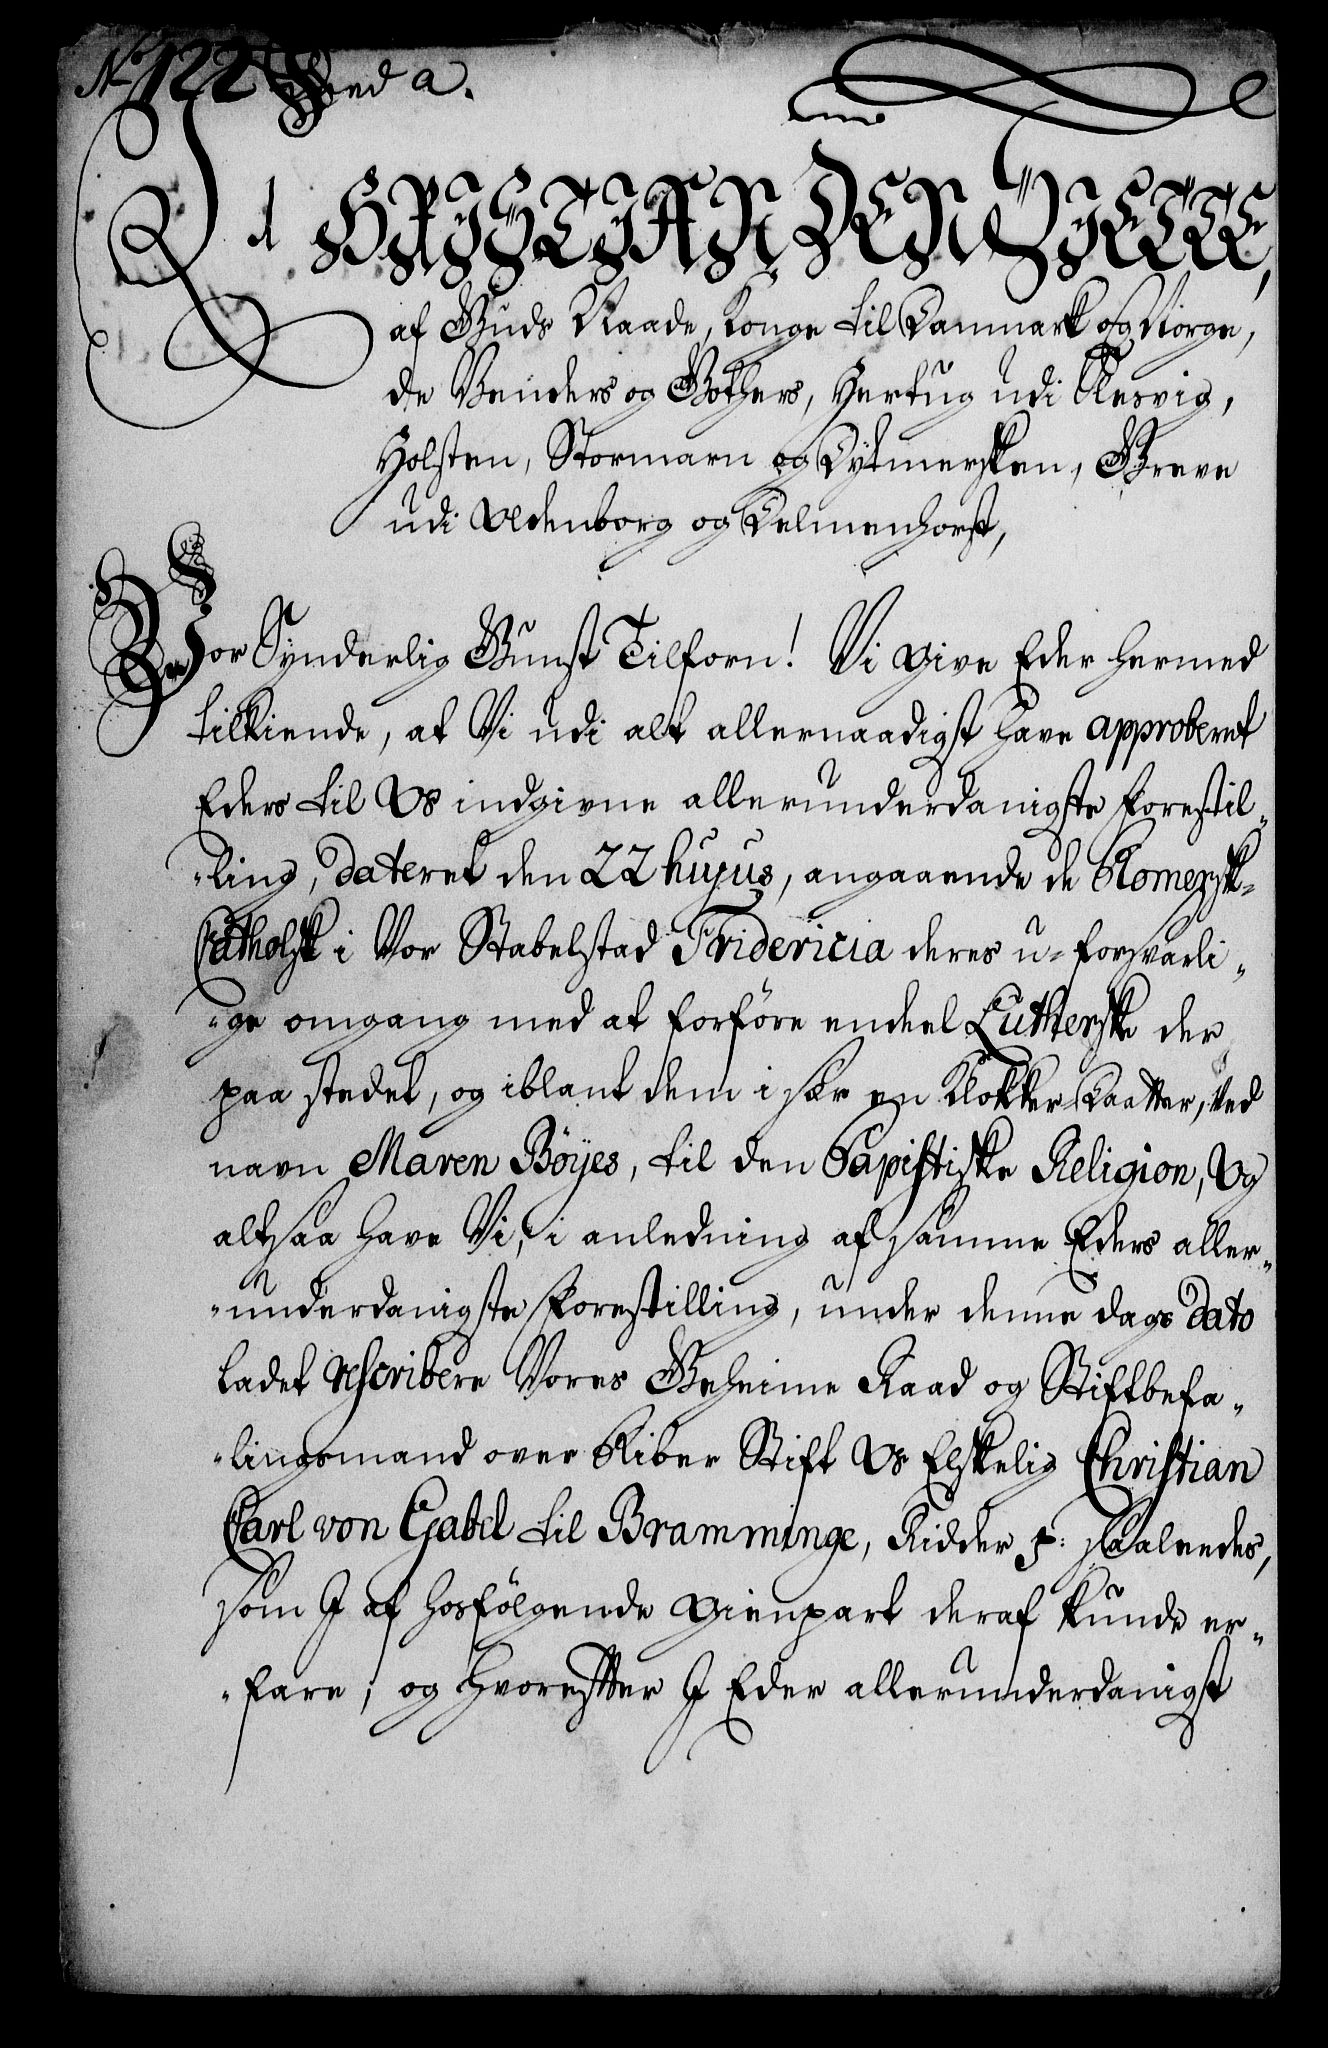 No 122 med a.
CHRISTIAN DEN SIETTE,
af Guds Naade, Konge til Danmark og Norge,
de Venders og Gothers, Hertug udi Slesvig,
Holsten, Stormarn og Dytmersken, Greve
udi Oldenborg og Delmenhorst,
Vor Synderlig Gunst Tilforn! Vi give Eder hermed
tilkiende, at Vi udi alt allernaadigst have approberet
Eders til Os indgivne allerunderdanigste Forestil-
-ling, dateret den 22 hujus, angaaende de Romersk-
Catholsk i Vor Stabelstad Fridericia deres u-forsvarli-
-ge omgang med at forföre endeel Lutherske der
paa stedet, og iblant dem i sær en Klokker Daatter, ved
navn Maren Böyes, til den Papistiske Religion, Og
altsaa have Vi, i anledning af samme Eders aller-
-underdanigste Forestilling, under denne dags dato
ladet rescribere Vores Geheime Raad og Stiftbefa-
-lingsmand over Riber Stift Os Elskelig Christian
Carl von Gabel til Bramminge, Ridder p: saaledes,
som I af hosfölgende Gienpart deraf kunde er-
-fare; og hvorefter I Eder allerunderdanigst